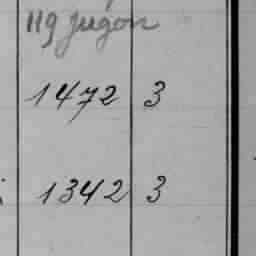 119 jugón
1472 3
1342 3